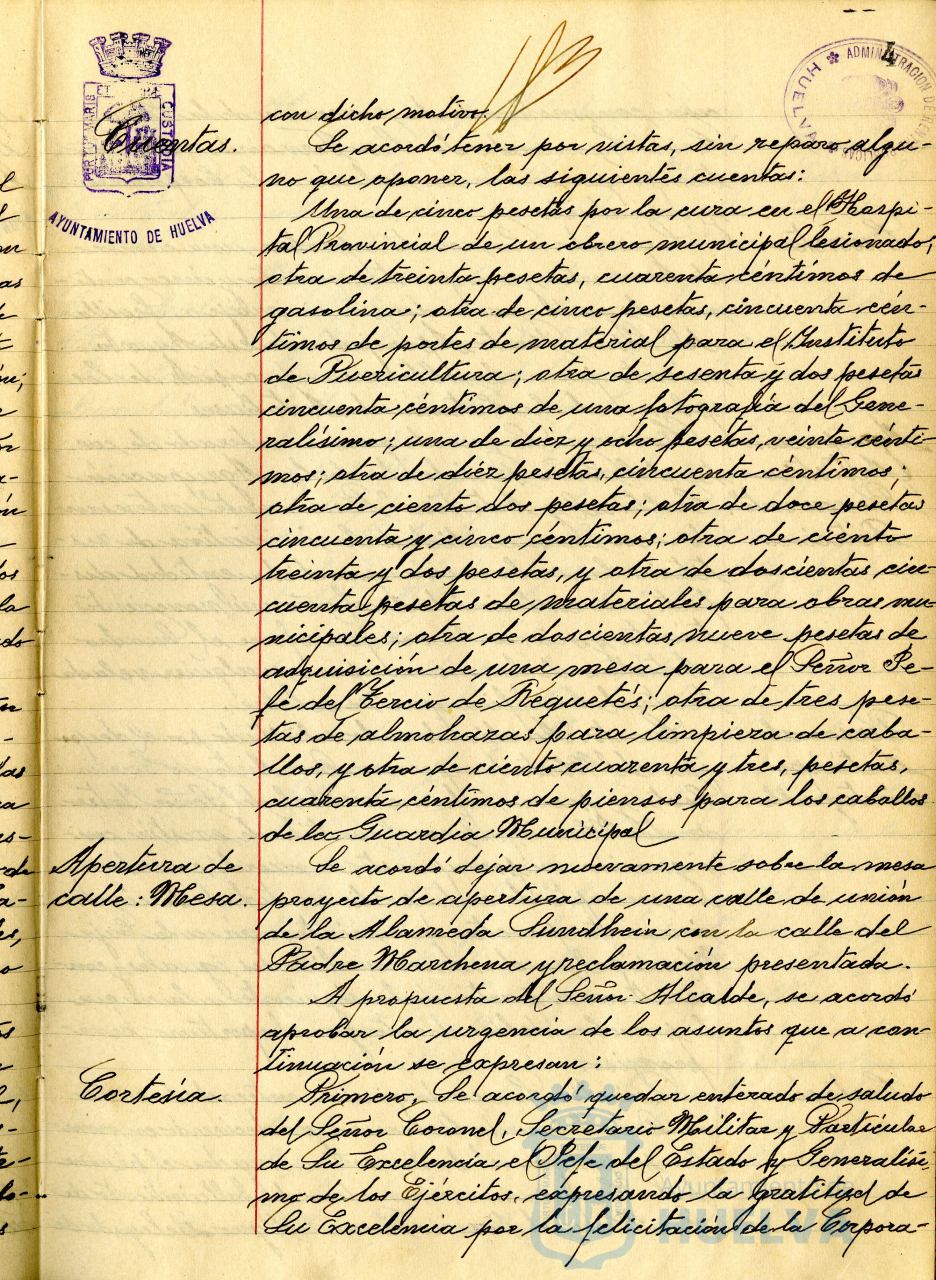 4
ADMINISTRACION DE
HUELVA
con dicho motivo.
Cuentas.
AYUNTAMIENTO DE HUELVA
Se acordó tener por vistas, sin reparo algu-
no que oponer, las siguientes cuentas:
Una de cinco pesetas por la cura en el Hospi-
tal Provincial de un obrero municipal lesionado;
otra de treinta pesetas, cuarenta céntimos de
gasolina; otra de cinco pesetas, cincuenta cén-
timos de portes de material para el Instituto
de Puericultura; otra de sesenta y dos pesetas
cincuenta céntimos de una fotografía del Gene-
ralísimo; una de diez y ocho pesetas, veinte cénti-
mos; otra de diez pesetas, cincuenta céntimos;
otra de ciento dos pesetas; otra de doce pesetas
cincuenta y cinco céntimos; otra de ciento
treinta y dos pesetas, y otra de doscientas cin-
cuenta pesetas de materiales para obras mu-
nicipales; otra de doscientas nueve pesetas de
adquisición de una mesa para el Señor Je-
fe del Tercio de Requetés; otra de tres pese-
tas de almohazas para limpieza de caba-
llos, y otra de ciento cuarenta y tres, pesetas,
cuarenta céntimos de piensos para los caballos
de la Guardia Municipal
Apertura de
calle: Mesa.
Se acordó dejar nuevamente sobre la mesa
proyecto de apertura de una calle de unión
de la Alameda Sundhein con la calle del
Padre Marchena y reclamación presentada.
A propuesta del Señor Alcalde, se acordó
aprobar la urgencia de los asuntos que a con-
tinuación se expresan:
Cortesía.
Primero. Se acordó quedar enterado de saludo
del Señor Coronel, Secretario Militar y Particular
de Su Excelencia el Jefe del Estado y Generalísi-
mo de los Ejércitos, expresando la gratitud de
Su Excelencia por la felicitación de la Corpora-
Ayuntamiento de
HUELVA